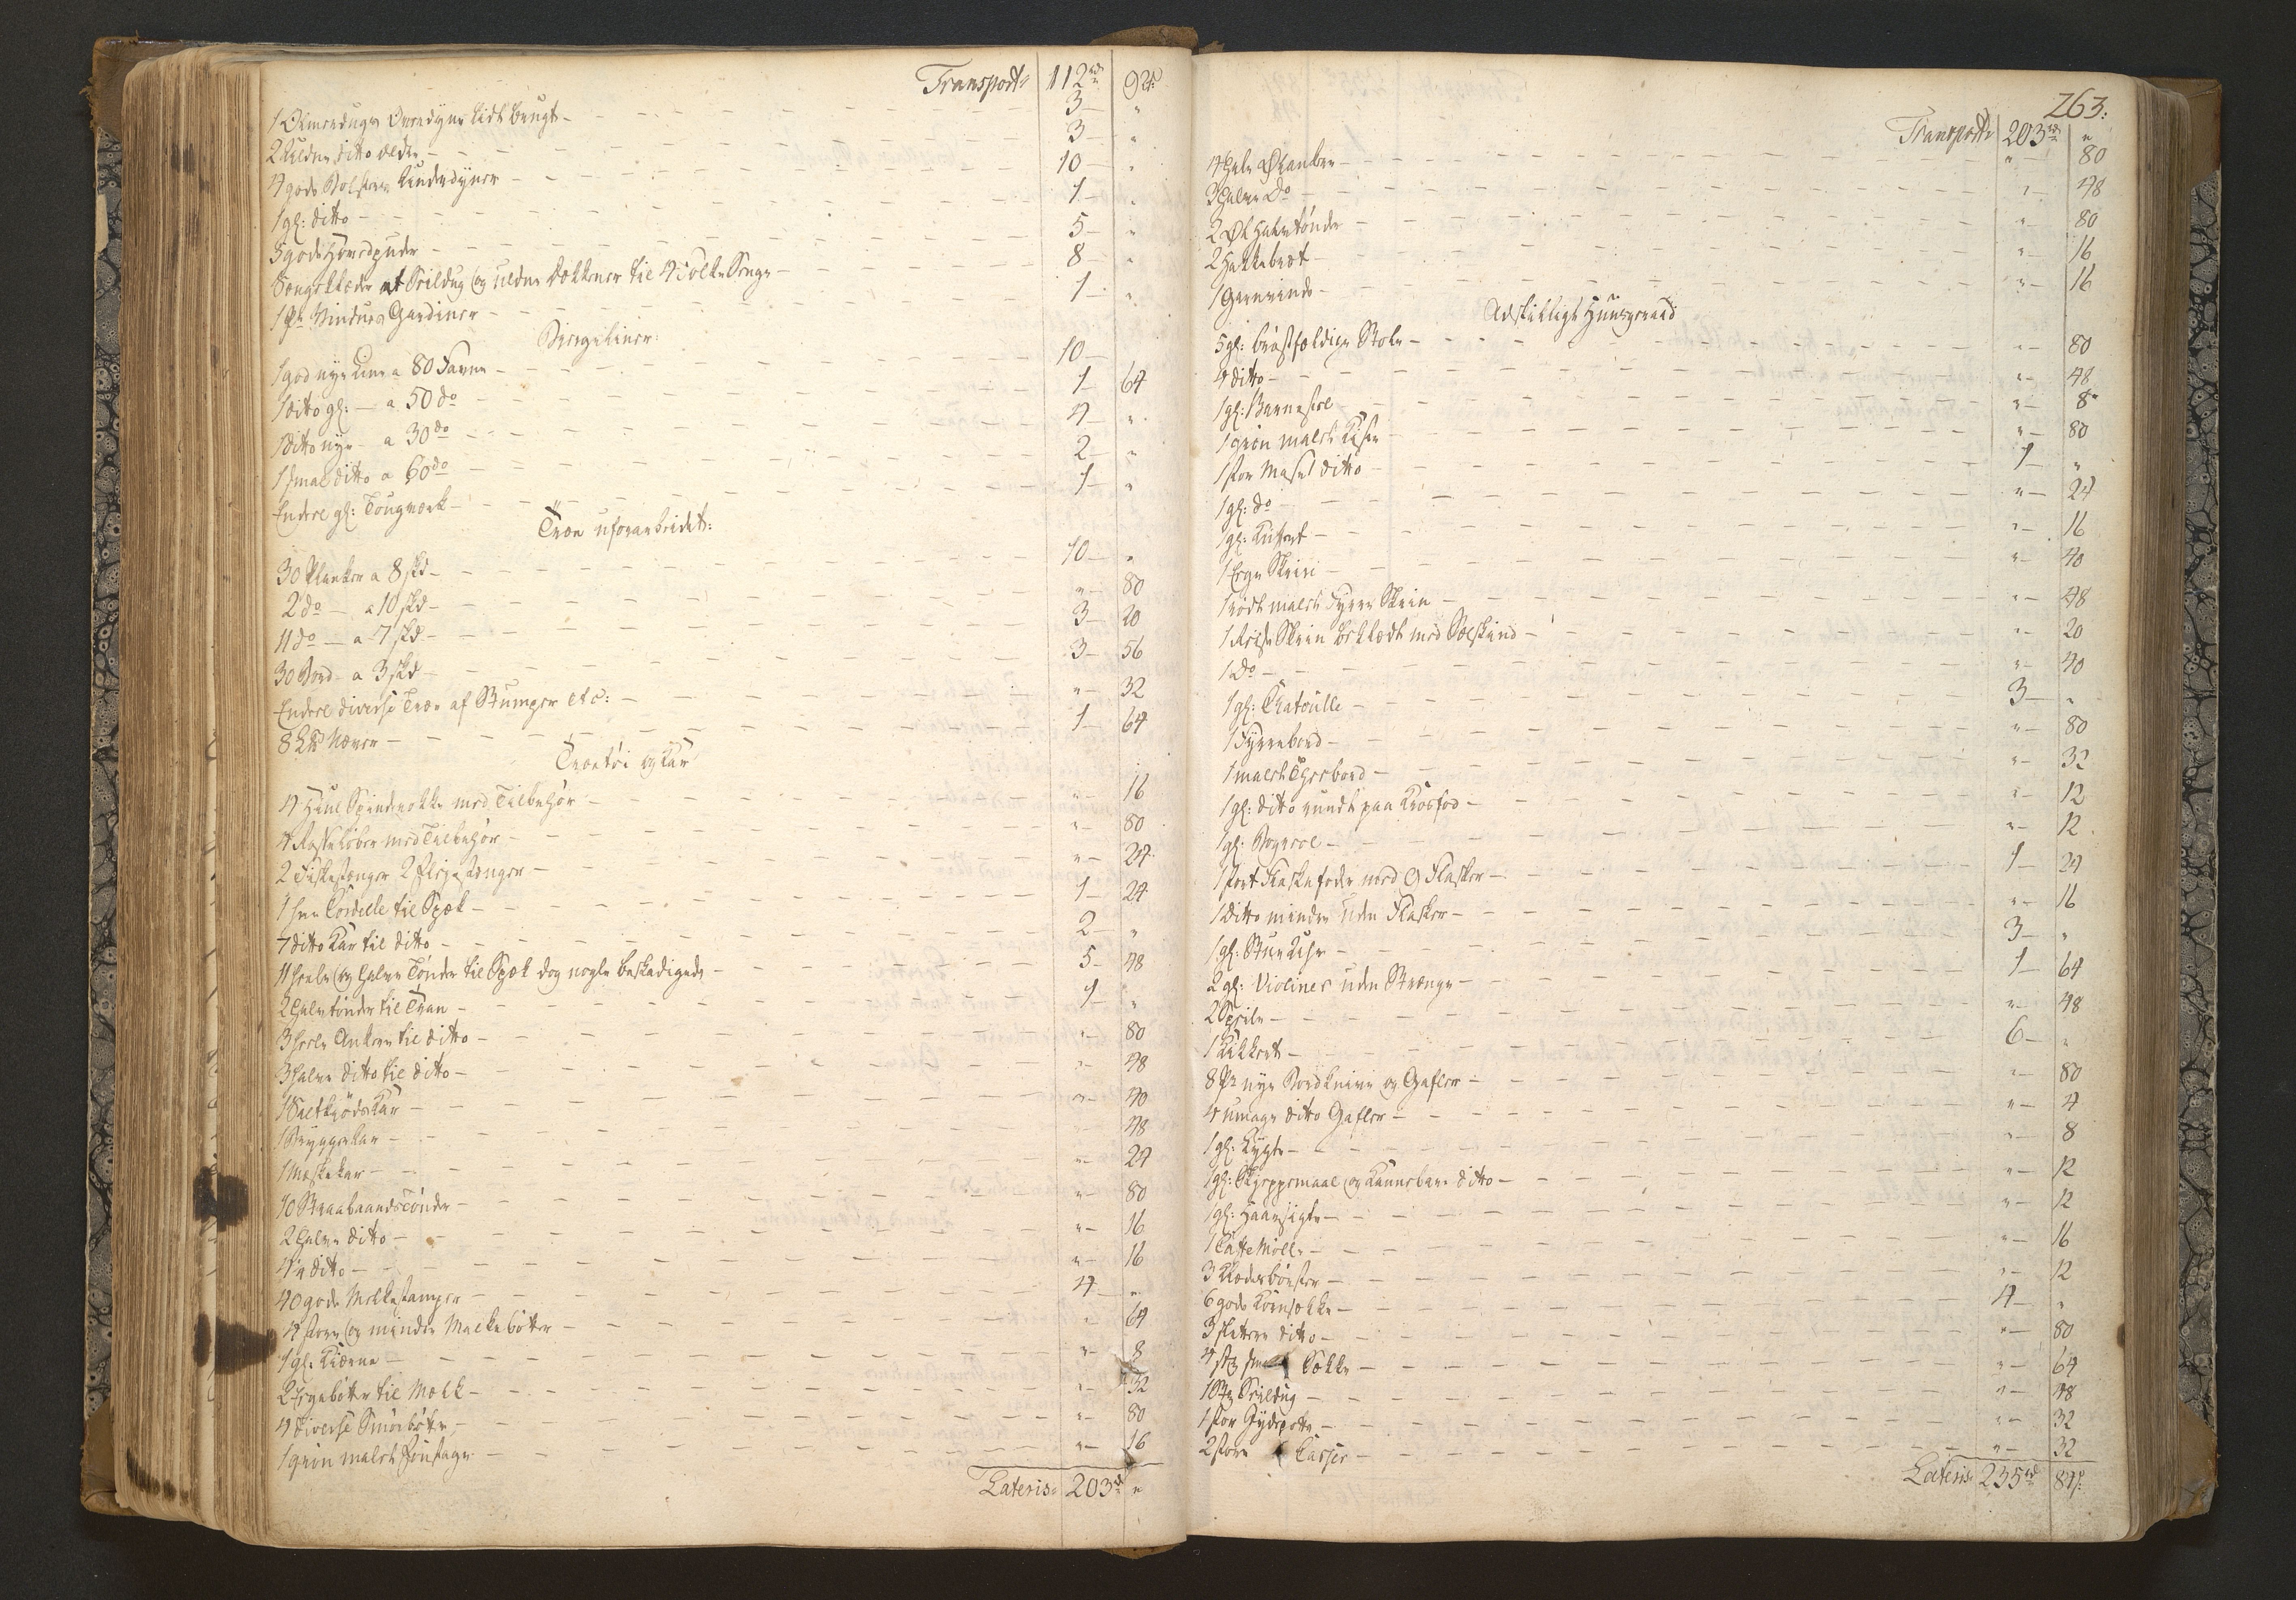 Transport 112 rd 92 s
1 Olmerdugs Overdyne lidt brugt — 3 — "
2 Uldne ditto ældre — 3 — "
4 gode Bolsters Underdyner — 10 — "
1 gl: ditto — 1 — "
5 gode Hovedpuder — 5 — "
Sængeklæder af Seildug og uldne Dækkener til 4 Folke Senge — 8 — "
1 Pr Vindues Gardiner — 1 — "
Bierge Liner:
1 god nye Line a 80 Favne — 10 —
1 ditto gl: — a 50 do — 1 — 64
1 ditto nye — a 30 do — 4 — "
1 smal ditto a 60 do — 2 — "
Endeel gl: Tougværk — 1 — "
Træe uforarbeidet:
30 Planker a 8 skd — 10 — "
2 do — a 10 skd — " — 80
11 do — a 7 skd — 3 — 20
30 Bord a 3 skd — 3 — 56
Endeel diverse Træe af Stumper etc: — " — 32
8 Næver — 1 — 64
Træetøi og Kar
4 Hiul Spinderokke med Tilbehør — " — 16
4 med Tilbehør — " — 80
2 Fiskestænger 2 — " — 24
1 til Spæk — 1 — 24
7 ditto Kar til ditto — 2 — "
11 heele og halve Tønder til Spæk dog nogle beskadigede — 5 — 48
2 halve tønder til Tran — 1 — "
3 heele Ankere til ditto — " — 80
3 halve ditto til ditto — " — 48
1 Saltkiøds Kar — " — 40
1 Bryggerkar — " — 48
1 Meskekar — " — 24
10 Straabaands Tønder — " — 80
2 halve ditto — " — 16
4 ditto — " — 16
40 gode Melkestamper — 4 — "
4 store og mindre Malkebøtter — " — 64
1 gl: Kiærne — " — 8
2 bøtter til Melk — " — 32
4 diverse Smørbøtter — " — 80
1 grøn malet — " — 16
Lateris 203 rd "
263:
Transport 203 rd "
4 hele Ølanker — " — 80
3 halve Do — " — 48
2 Øl Halvtønder — " — 80
2 Hakkebræt — " — 16
1 Garnvinde — " — 16
Adskilligt Huusgeraad
5 gl: brøstfældige Stole — " — 80
4 ditto — " — 48
1 gl: Barnestol — " — 8
1 grøn malet Kiste — " — 80
1 stor ditto — 1 — "
1 gl: do — " — 24
1 gl: Kuffert — " — 16
1 Skrin — " — 40
1 rødt malet Fyrre Skrin — " — 48
1 Reise Skrin beklædt med Sælskind — " — 20
1 Do — " — 40
1 gl: Chatoulle — 3 — "
1 Fyrrebord — " — 80
1 malet Theebord — " — 32
1 gl: ditto rundt paa Krosfod — " — 12
1 gl: Bogreol — " — 12
1 stort Flaskefoder med 9 Flasker — 1 — 24
1 ditto mindre uden Flasker — " — 16
1 gl: Stue Uhr — 3 — "
2 gl: Violiner uden Strænge — 1 — 64
2 Speile — " — 48
1 Kikkert — 6 — "
8 Pr nye Bordknive og Gafler — " — 80
4 umage ditto Gafler — " — 4
1 gl: Lygte — " — 8
1 gl: Skjeppemaal og ditto — " — 12
1 gl: Haarsigte — " — 12
1 Caffe Mølle — " — 16
3 Klædebørster — " — 12
6 gode Kornsække — 4 — "
3 slettere ditto — " — 80
4 stk Sække — " — 64
1 Stk Seildug — " — 48
1 stor — " — 32
2 store Casser — " — 32
Lateris 235 rd 84 s